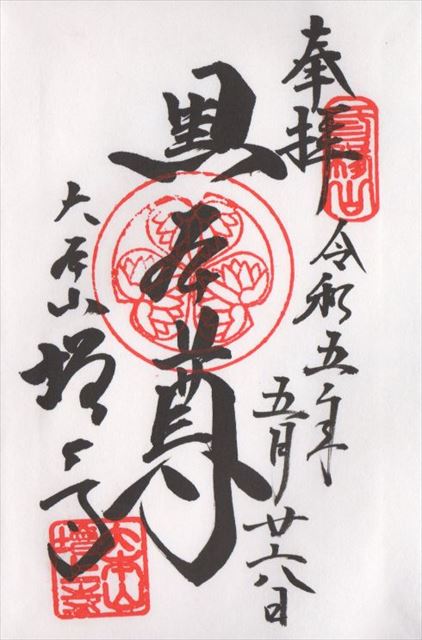 奉拝
令和五年
五月廿六日
黒本尊
大本山
増上寺
三縁山
大本山
増上寺